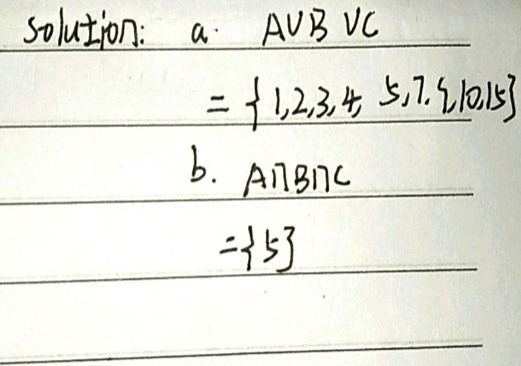 Solution: a. A∪B∪C
= {1,2,3,4, 5,7,9,10,15}
b. A∩B∩C
={5}